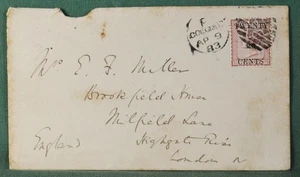 COLOMBO
AP 9
83
TWENTY
CENTS
Mrs E. F. Miller
Brookfield House
Milfield Lane
Highgate Rise
England
London N